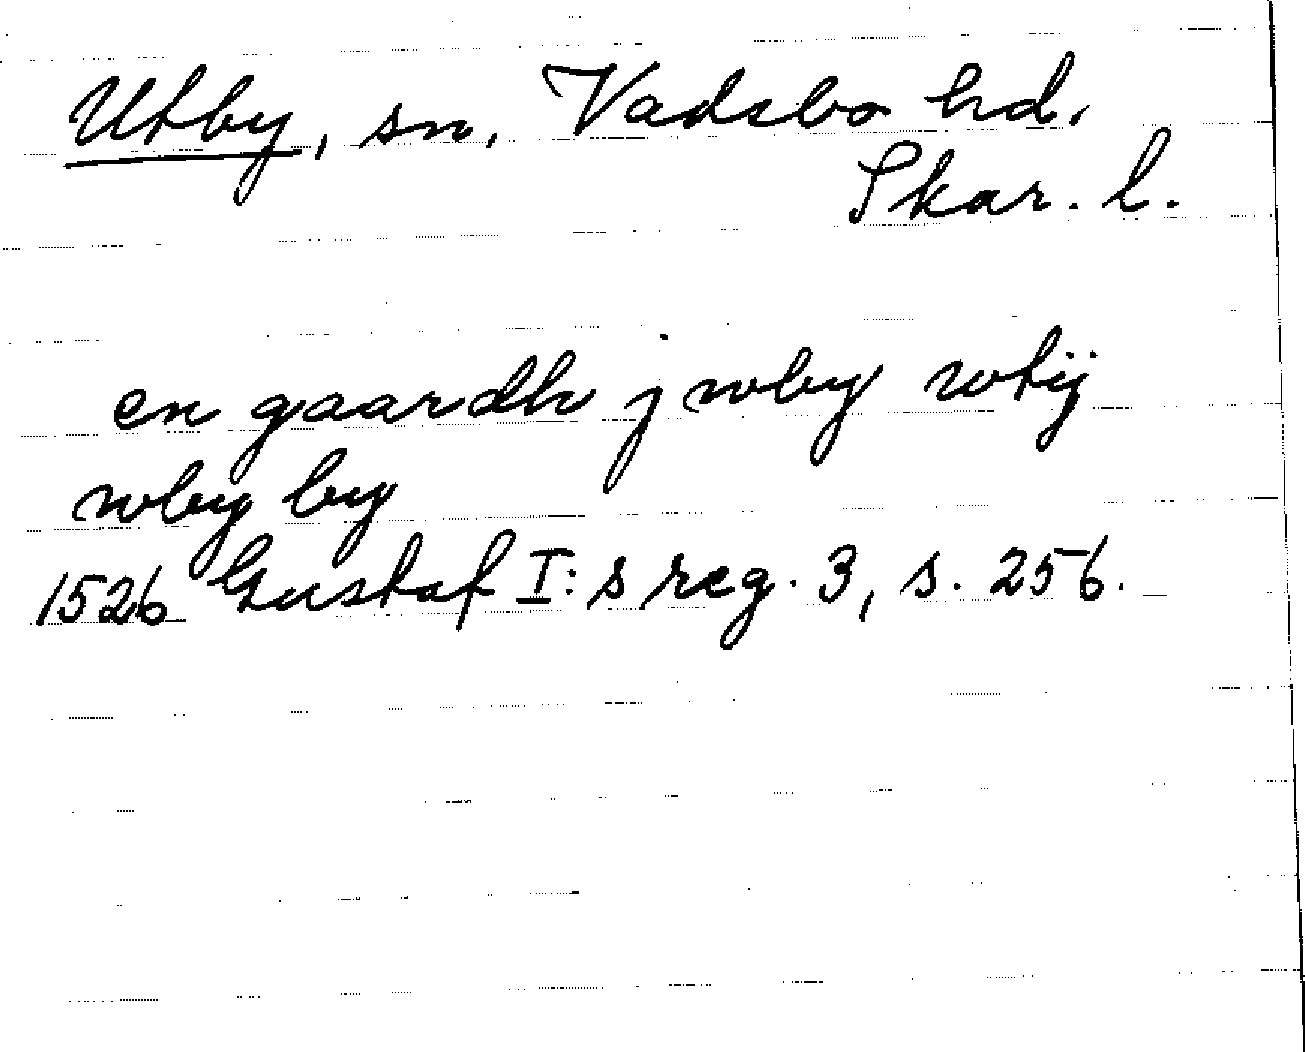 Utby, sn, Vadsbo hd.
Skar. l.
en gaardh j wby wtij
wby by
1526 Gustaf I:s reg. 3, s. 256.